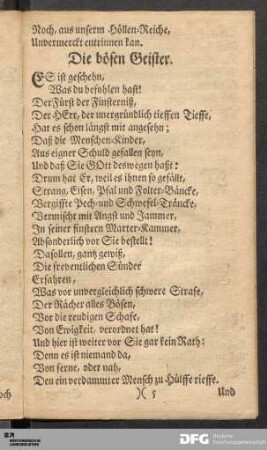 Noch, aus unserm Höllen-Reiche,
Unvermerckt entrinnen kan.
Die bösen Geister.
ES ist geschehn,
Was du befohlen hast!
Der Fürst der Finsterniß,
Der HErr, der unergründlich tieffen Tieffe,
Hat es schon längst mit angesehn;
Daß die Menschen-Kinder,
Aus eigner Schuld gefallen seyn,
Und daß Sie GOtt deswegen haßt:
Drum hat Er, weil es ihnen so gefällt,
Strang, Eisen, Pfal und Folter-Bäncke,
Vergiffte Pech-und Schwefel-Träncke,
Vermischt mit Angst und Jammer,
In seiner finstern Marter-Kammer,
Absonderlich vor Sie bestellt!
Da sollen, gantz gewiß,
Die freventlichen Sünder
Erfahren,
Was vor unvergleichlich schwere Strafe,
Der Rächer alles Bösen,
Vor die reudigen Schafe,
Von Ewigkeit, verordnet hat!
Und hier ist weiter vor Sie gar kein Rath:
Denn es ist niemand da,
Von ferne, oder nah,
Den ein verdammter Mensch zu Hülffe rieffe.
)( 5 Und
och
DFG Deutsche
Forschungsgemeinschaft